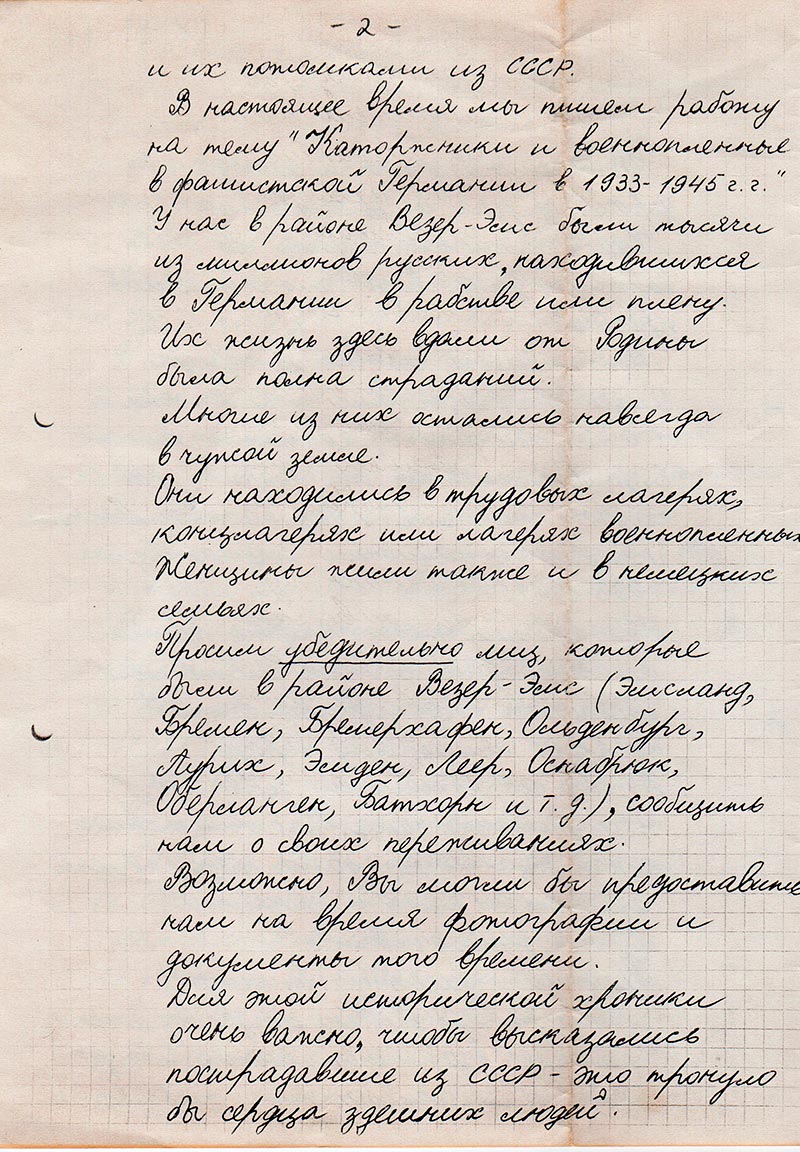 - 2 -
и их потомками из СССР.
В настоящее время мы пишем работу
на тему "Каторжники и военнопленные
в фашистской Германии в 1933-1945 г.г."
У нас в районе Везер-Эмс были тысячи
из миллионов русских, находившихся
в Германии в рабстве или плену.
Их жизнь здесь вдали от Родины
была полна страданий.
Многие из них остались навсегда
в чужой земле.
Они находились в трудовых лагерях,
концлагерях или лагерях военнопленных
Женщины жили также и в немецких
семьях.
Просим убедительно лиц, которые
были в районе Везер-Эмс (Эмсланд,
Бремен, Бремерхафен, Ольденбург,
Аурих, Эмден, Леер, Оснабрюк,
Оберланген, Батхорн и т. д.), сообщить
нам о своих переживаниях.
Возможно, Вы могли бы предоставить
нам на время фотографии и
документы того времени.
Для этой исторической хроники
очень важно, чтобы высказались
пострадавшие из СССР - это тронуло
бы сердца здешних людей".